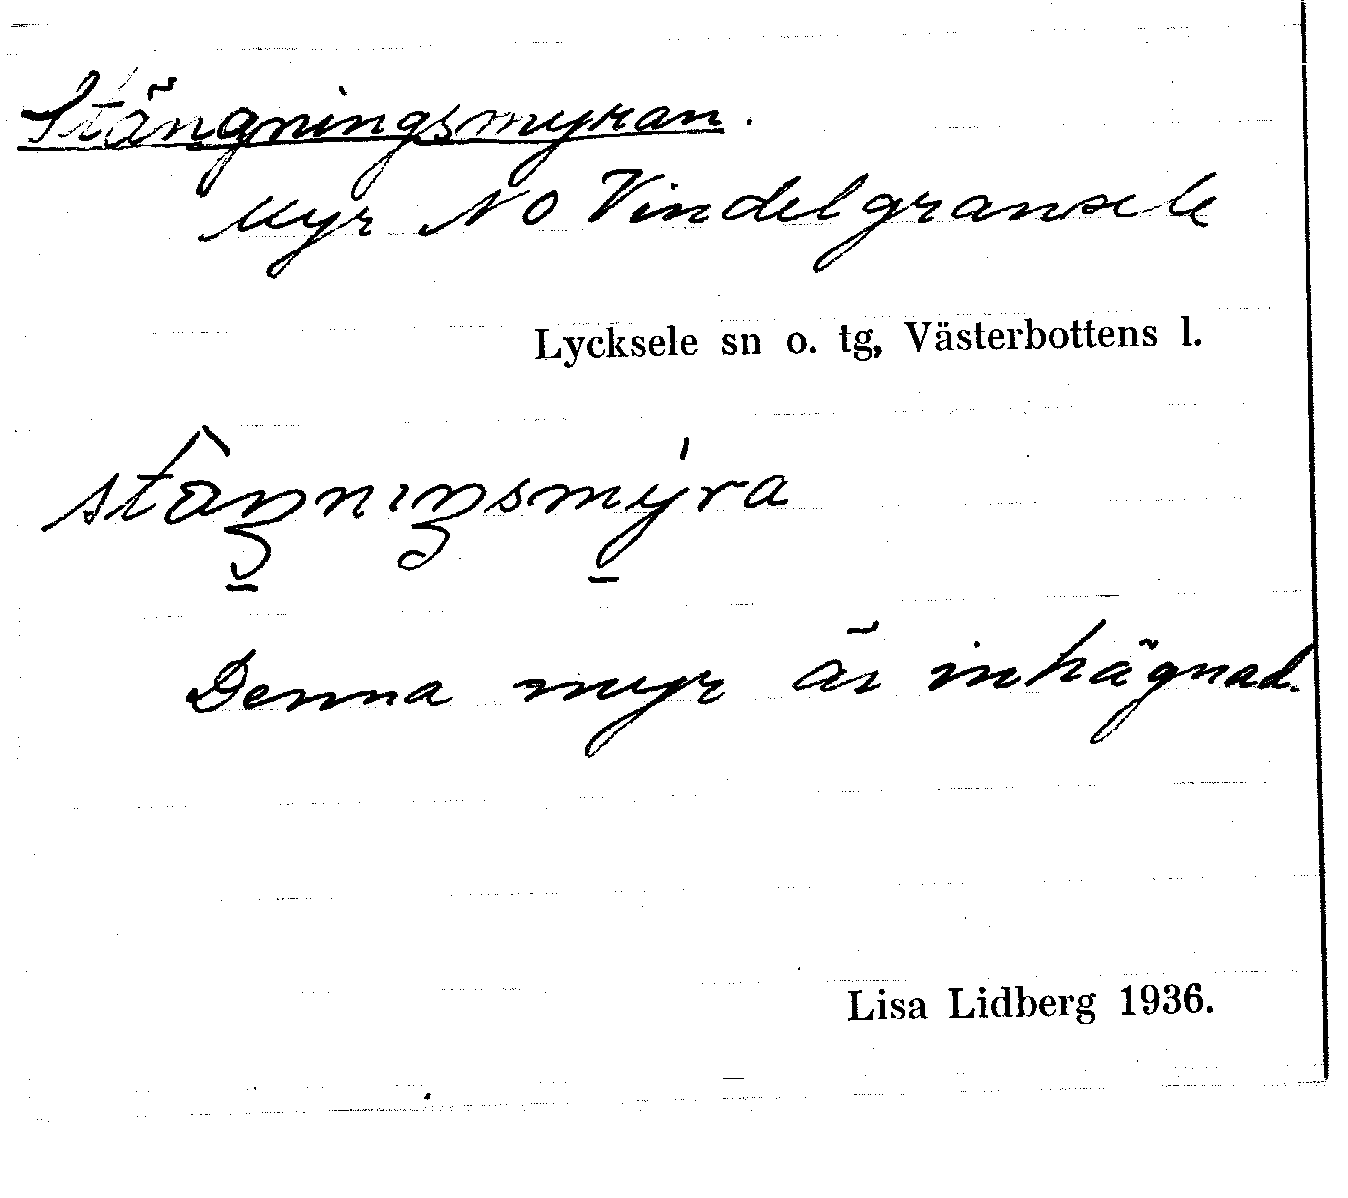 Stängningsmyran.
Myr NO Vindelgransele
Lycksele sn o. tg, Västerbottens l.
stâŋnıŋsmýra
Denna myr är inhägnad.
Lisa Lidberg 1936.